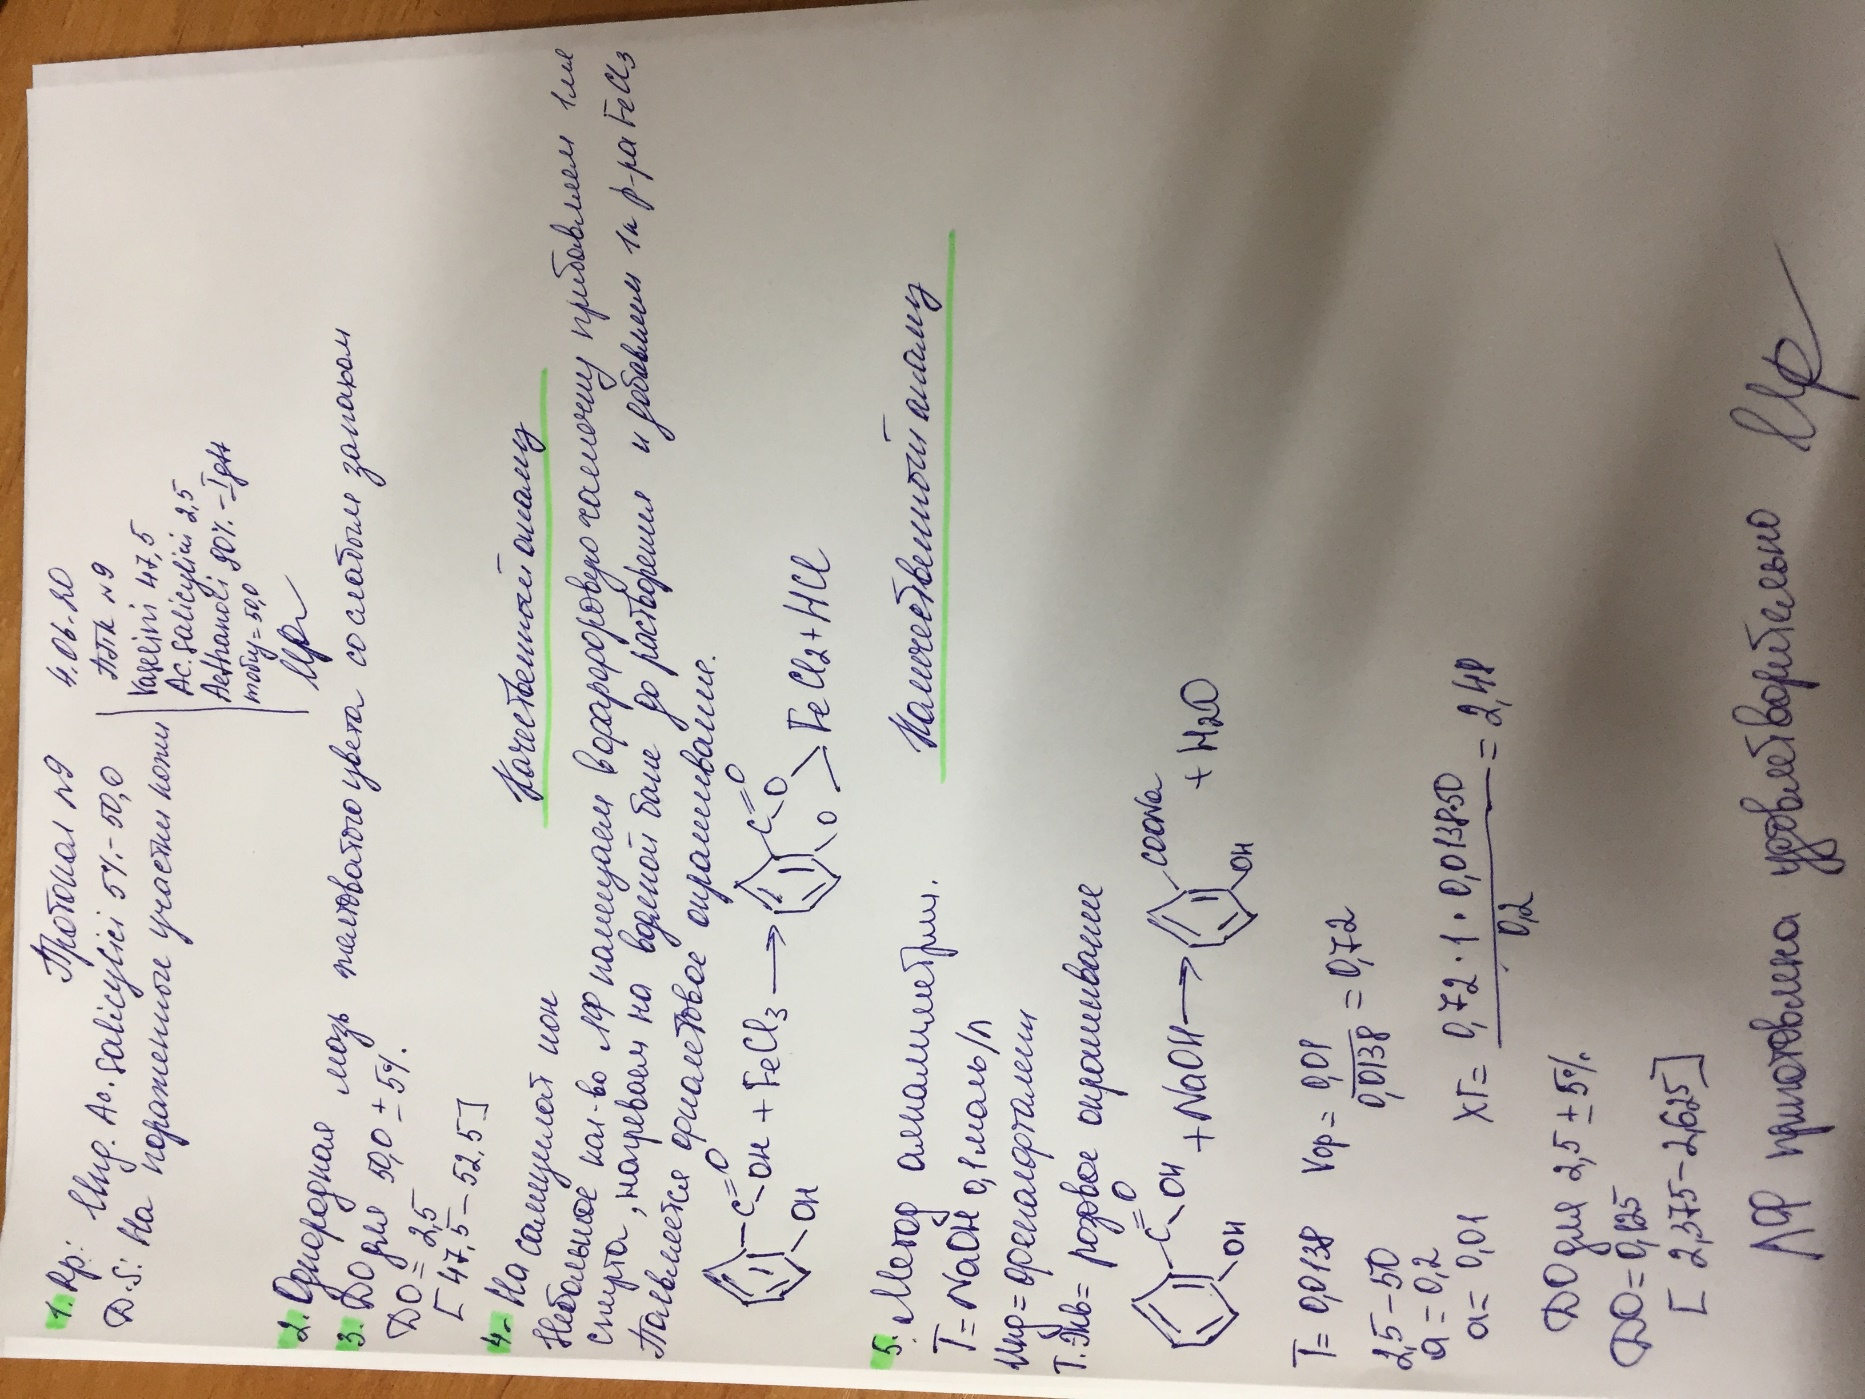 Протокол №9
4.06.20
1. Rp: Ung. Ac. Salicylici 5% - 50,0
D.S: На пораженные участки кожи
ППК №9
Vaselini 47,5
Ac. Salicylici 2,5
Aethanoli 90% - I gtts
mобщ = 50,0
2. Однородная мазь желтоватого цвета со слабым запахом
3. ДО для 50,0 ± 5%.
ДО = 2,5
[47,5 - 52,5]
Качественный анализ
4. На салицилат ион
Небольшое кол-во ЛФ помещаем в фарфоровую чашечку прибавляем 1мл
спирта, нагреваем на водяной бане до растворения и добавляем 1к р-ра FeCl3
Появляется фиолетовое окрашивание.
C=O OH OH + FeCl3 → C=O O O > FeCl2 + HCl
Количественный анализ
5. Метод алкалиметрии.
T = NaOH 0,1 моль/л
Инд = фенолфталеин
Т. Экв = розовое окрашивание
C=O OH OH + NaOH → COONa OH + H2O
T = 0,0138 Vор = 0,01 / 0,0138 = 0,72
2,5 - 50
a = 0,2
a = 0,01
XГ = 0,72 · 1 · 0,0138·50 / 0,2 = 2,48
ДО для 2,5 ± 5%
ДО = 0,125
[2,375 - 2,625]
ЛФ приготовлена удовлетворительно